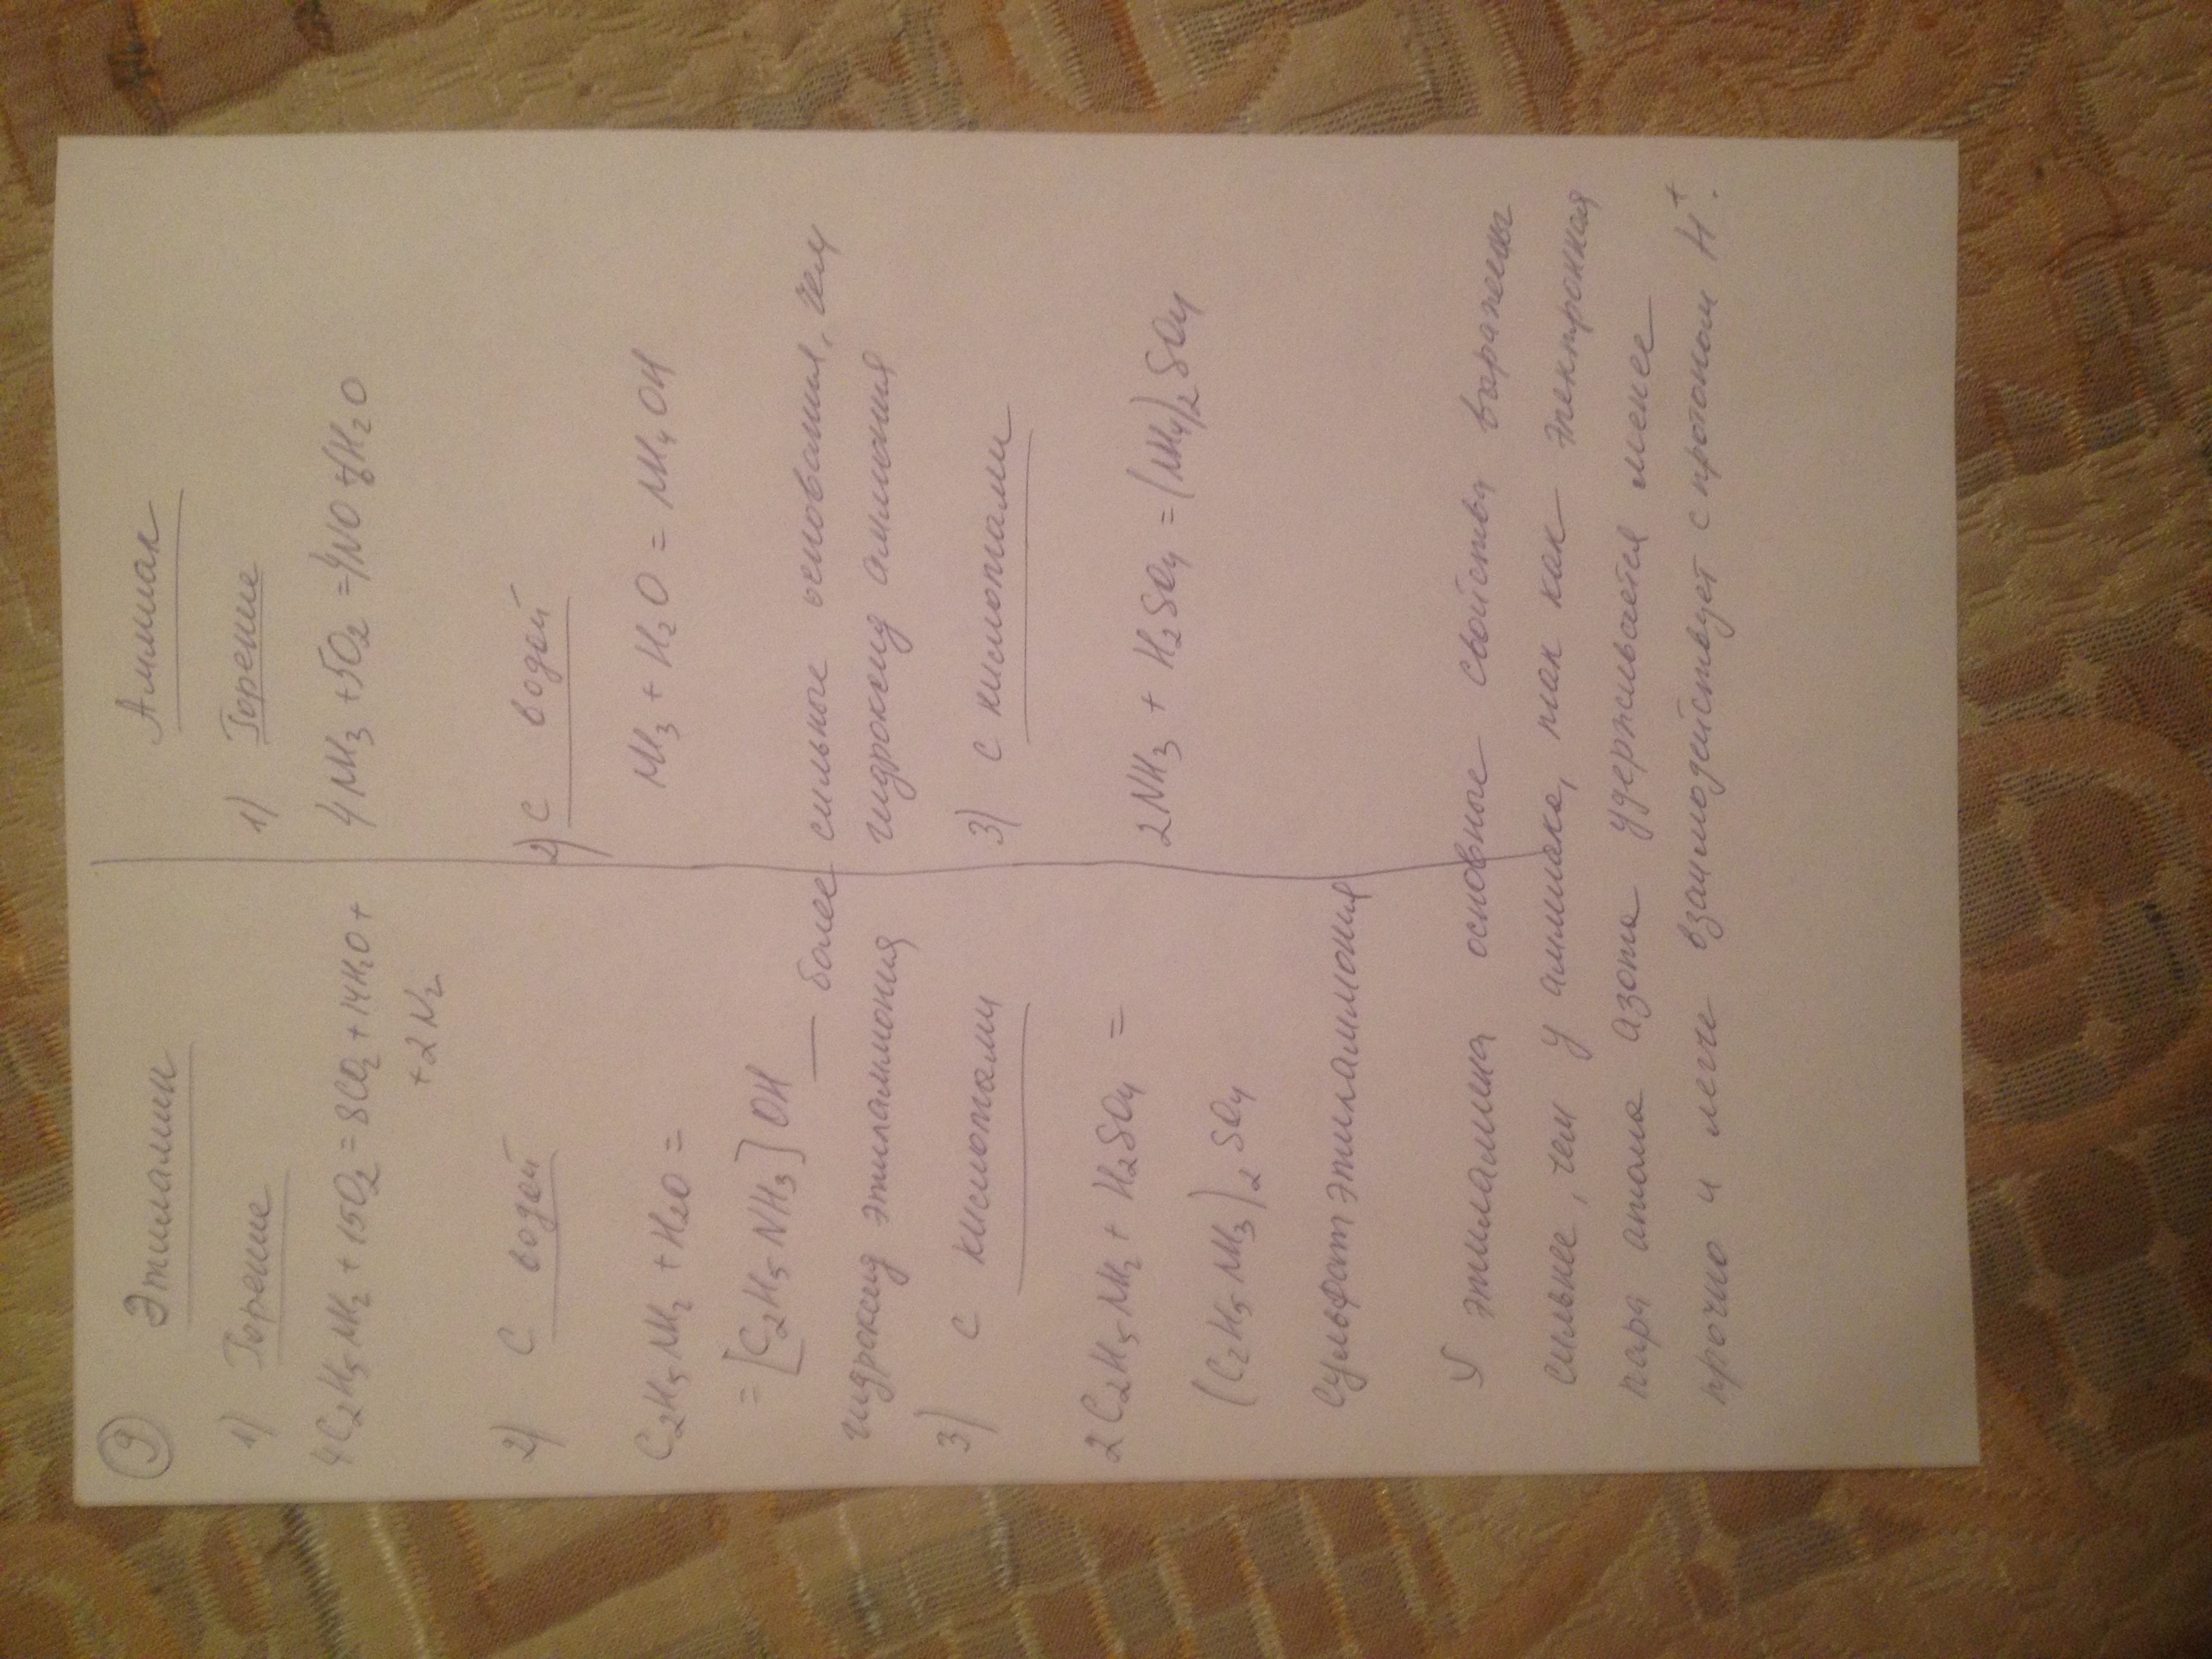 9
Этиламин
1) Горение
4C₂H₅NH₂ + 15O₂ = 8CO₂ + 14H₂O +
+ 2N₂
2) С водой
C₂H₅NH₂ + H₂O =
= [C₂H₅NH₃]OH — более сильное основание, чем
гидроксид этиламмония гидроксид аммония
3) С кислотами
2C₂H₅NH₂ + H₂SO₄ =
(C₂H₅NH₃)₂SO₄
Сульфат этиламмония
Аммиак
1) Горение
4NH₃ + 5O₂ = 4NO + 6H₂O
2) С водой
NH₃ + H₂O = NH₄OH
3) С кислотами
2NH₃ + H₂SO₄ = (NH₄)₂SO₄
У этиламина основные свойства выражены
сильнее, чем у аммиака, так как электронная
пара атома азота удерживается менее
прочно и легче взаимодействует с протоном H⁺.